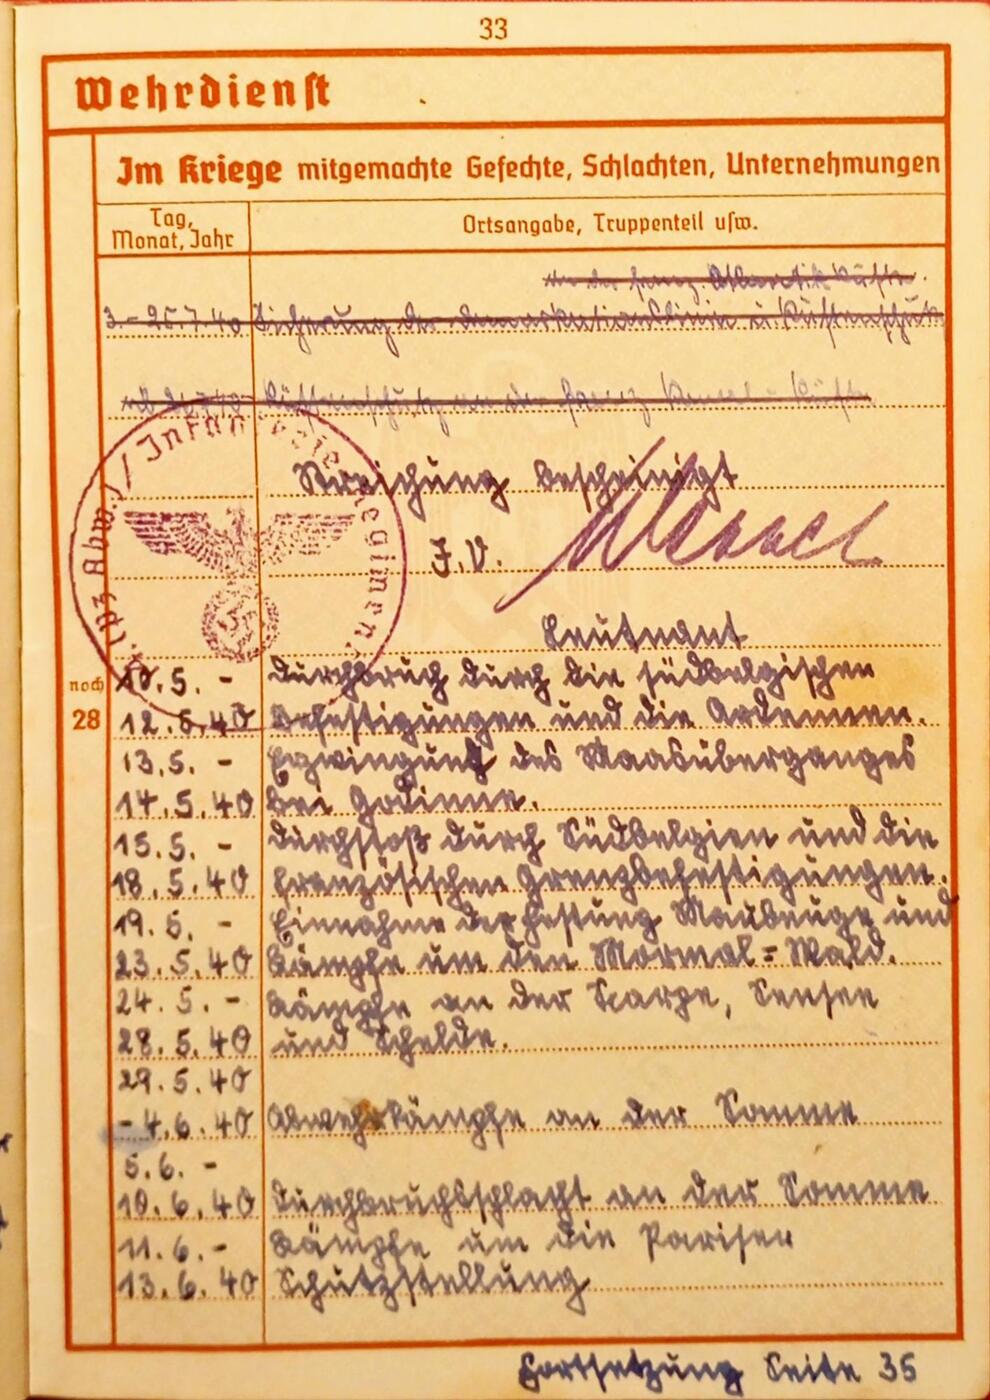 33
Wehrdienst
Im Kriege mitgemachte Gefechte, Schlachten, Unternehmungen
Tag, Monat, Jahr
Ortsangabe, Truppenteil usw.
an der franz. Atlantikküste.
3.-25.7.40 Sicherung der Demarkationslinie u. Küstenschutz
Küstenschutz an der franz. Kanal-Küste
Streichung bescheinigt
J.V.
Leutnant
Pz Abw. / Infanterie Regiment
noch 28
10.5. - Durchbruch durch die südbelgischen
12.5.40 Befestigungen und die Ardennen.
13.5. - Erzwingung des Maasüberganges
14.5.40 bei Godinne.
15.5. - Durchstoß durch Südbelgien und die
18.5.40 französischen Grenzbefestigungen.
19.5. - Einnahme der Festung Maubeuge und
23.5.40 Kämpfe um den Mormal=Wald.
24.5. - Kämpfe an der Scarpe, Sensee
28.5.40 und Schelde.
29.5.40
-4.6.40 Abwehrkämpfe an der Somme
5.6. -
10.6.40 Durchbruchsschlacht an der Somme
11.6. - Kämpfe um die Pariser
13.6.40 Schutzstellung
Fortsetzung Seite 35